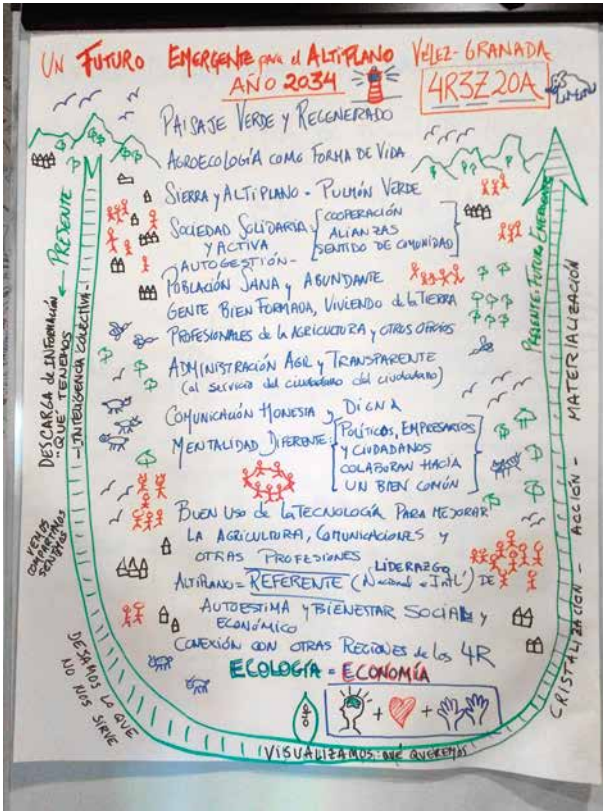 UN FUTURO EMERGENTE para el ALTIPLANO VELEZ-GRANADA
AÑO 2034
4R3Z20A
PAISAJE VERDE Y REGENERADO
AGROECOLOGÍA COMO FORMA DE VIDA
SIERRA Y ALTIPLANO - PULMÓN VERDE
SOCIEDAD SOLIDARIA Y ACTIVA: COOPERACIÓN
ALIANZAS
SENTIDO DE COMUNIDAD
AUTOGESTIÓN-
POBLACIÓN SANA Y ABUNDANTE
GENTE BIEN FORMADA, VIVIENDO de la TIERRA
PROFESIONALES de la AGRICULTURA y OTROS OFICIOS
ADMINISTRACIÓN AGIL y TRANSPARENTE
(al servicio del ciudadano del ciudadano)
COMUNICACIÓN HONESTA y DIGNA
MENTALIDAD DIFERENTE: POLÍTICOS, EMPRESARIOS
Y CIUDADANOS
COLABORAN HACIA
UN BIEN COMÚN
BUEN USO de la TECNOLOGÍA PARA MEJORAR
LA AGRICULTURA, COMUNICACIONES y
OTRAS PROFESIONES
ALTIPLANO = REFERENTE (Nacional e Intl') DE LIDERAZGO
AUTOESTIMA y BIENESTAR SOCIAL y
ECONÓMICO
CONEXIÓN CON OTRAS REGIONES de los 4R
ECOLOGÍA = ECONOMÍA
← PRESENTE
DESCARGA de INFORMACIÓN
"QUÉ" TENEMOS
-INTELIGENCIA COLECTIVA-
VEMOS
COMPARTIMOS
SENTIMOS
DEJAMOS LO QUE
NO NOS SIRVE
VISUALIZAMOS: QUÉ QUEREMOS
CRISTALIZACIÓN - ACCIÓN - MATERIALIZACIÓN
FUTURO EMERGENTE